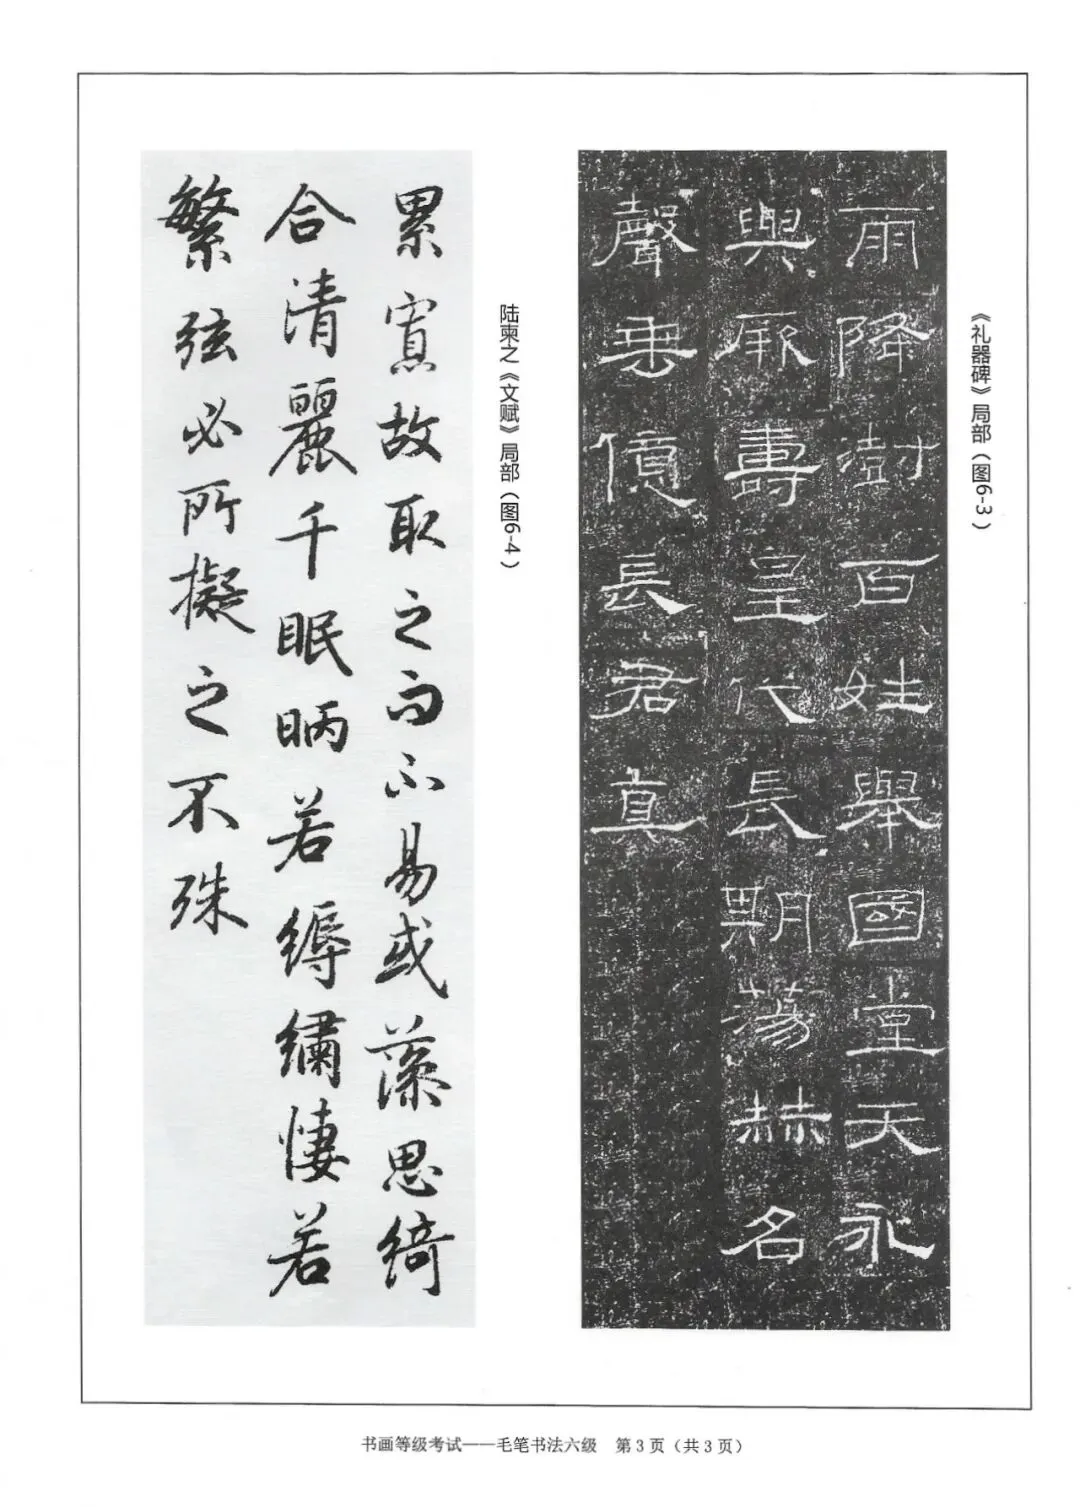 雨降澍百姓舉國堂天永
興厥壽皇代長期蕩赫名
聲垂億長君真
《礼器碑》局部（图6-3）
累寘故取之而不易或藻思綺
合清麗千眠昞若縟繡悽若
繁弦必所擬之不殊
陆柬之《文赋》局部（图6-4）
书画等级考试——毛笔书法六级 第3页（共3页）